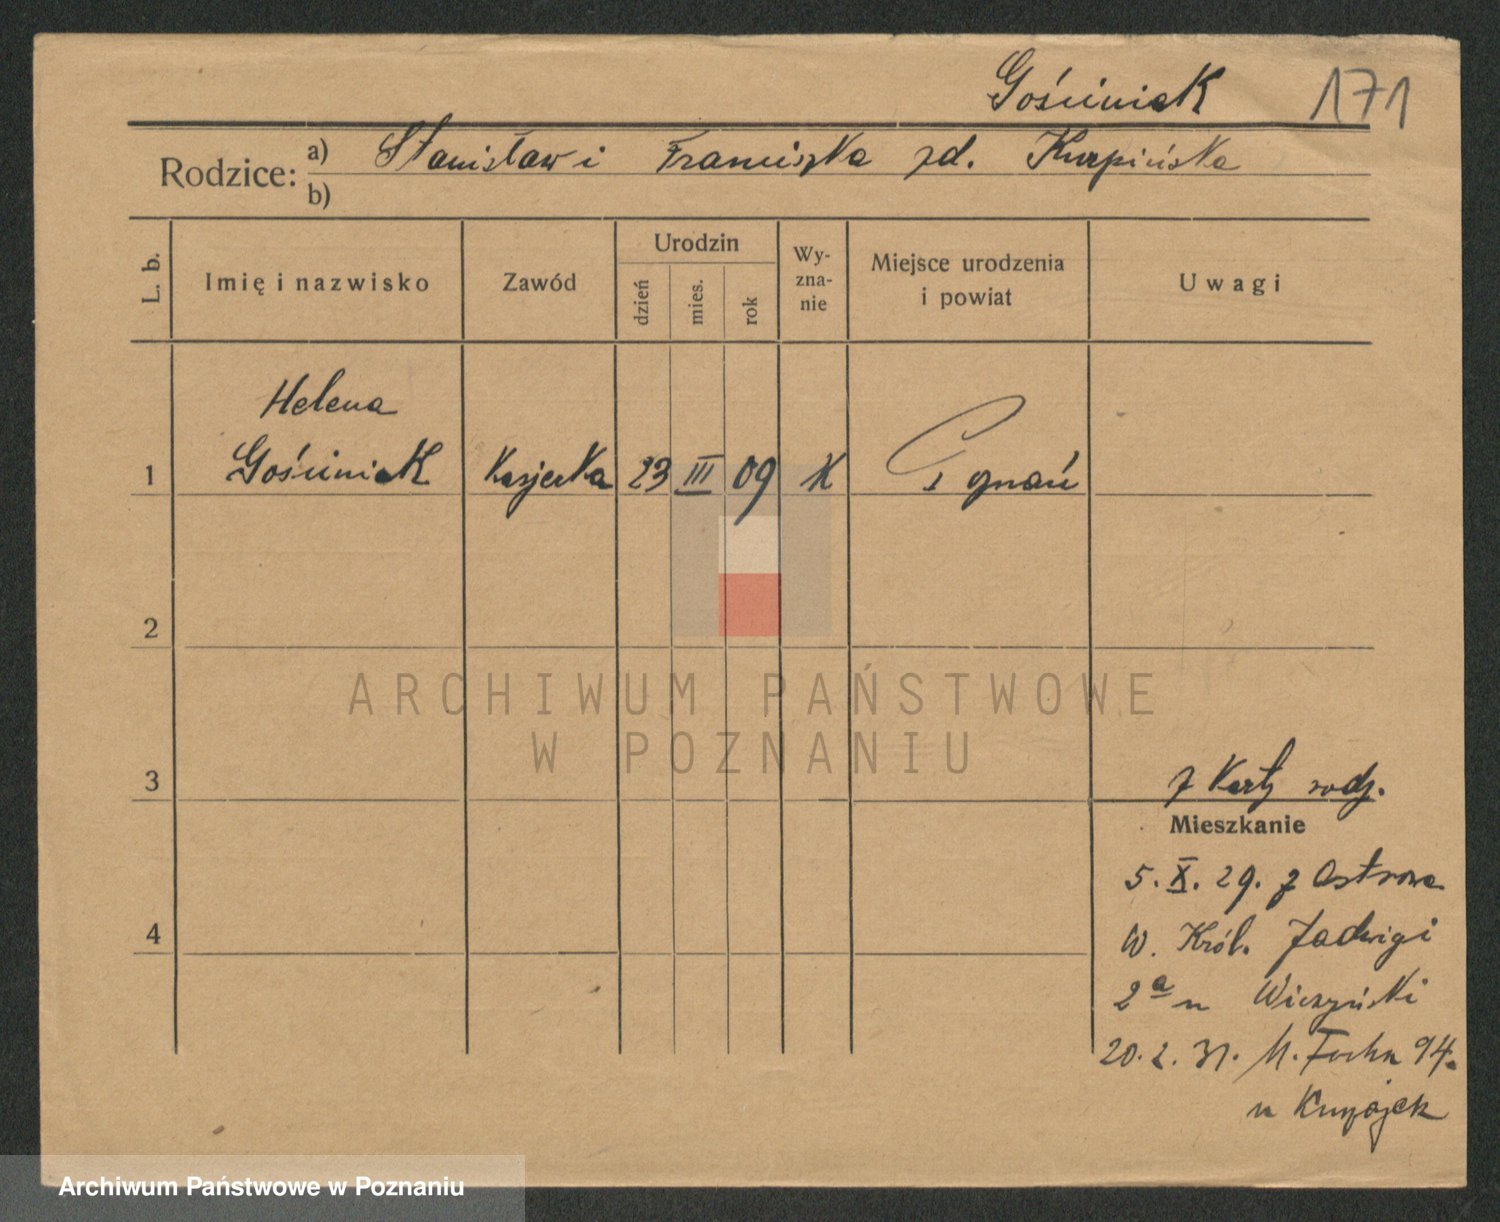 Gościniak 171
Rodzice: a) Stanisław i Franciszka zd. Kurpińska
b)
L. b. Imię i nazwisko Zawód Urodzin dzień mies. rok Wyznanie Miejsce urodzenia i powiat Uwagi
Helena
1 Gościniak Kasjerka 23 III 09 K Poznań
2
ARCHIWUM PAŃSTWOWE
W POZNANIU
3 z Karty rodz.
Mieszkanie
5. X. 29. z Ostrowa
4 W. Król. Jadwigi
2a u
20. 2. 31. M. Focha 94.
u
Archiwum Państwowe w Poznaniu